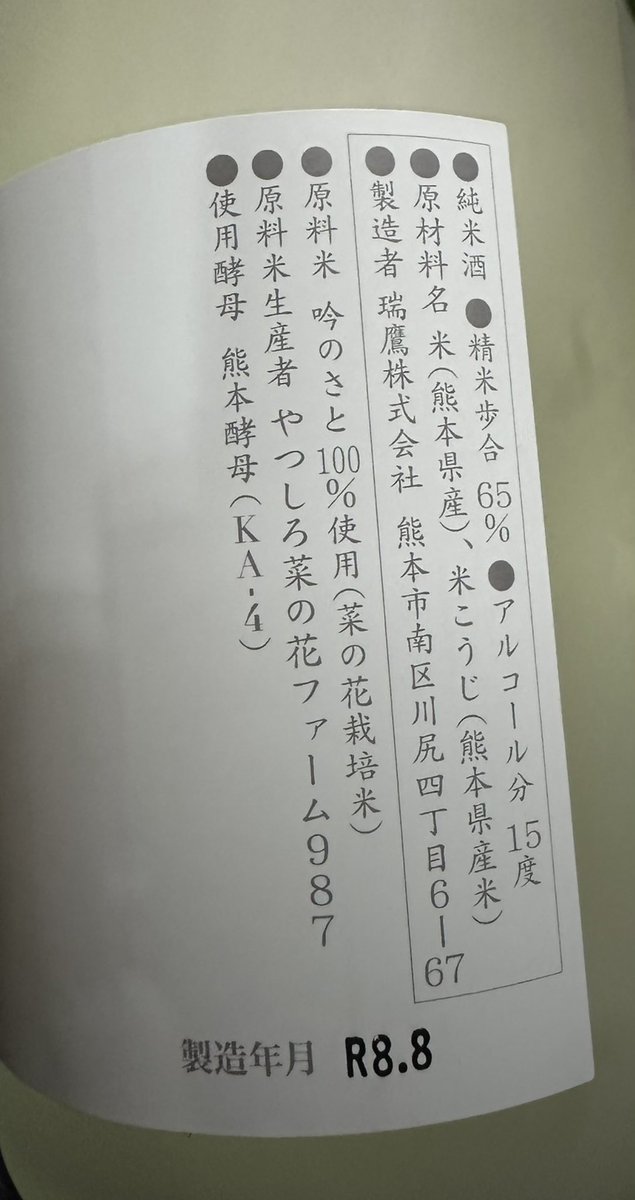 ●純米酒 ●精米歩合 65% ●アルコール分 15度
●原材料名 米(熊本県産)、米こうじ(熊本県産米)
●製造者 瑞鷹株式会社 熊本市南区川尻四丁目6－67
●原料米 吟のさと100%使用(菜の花栽培米)
●原料米生産者 やつしろ菜の花ファーム987
●使用酵母 熊本酵母(KA-4)
製造年月 R8.8